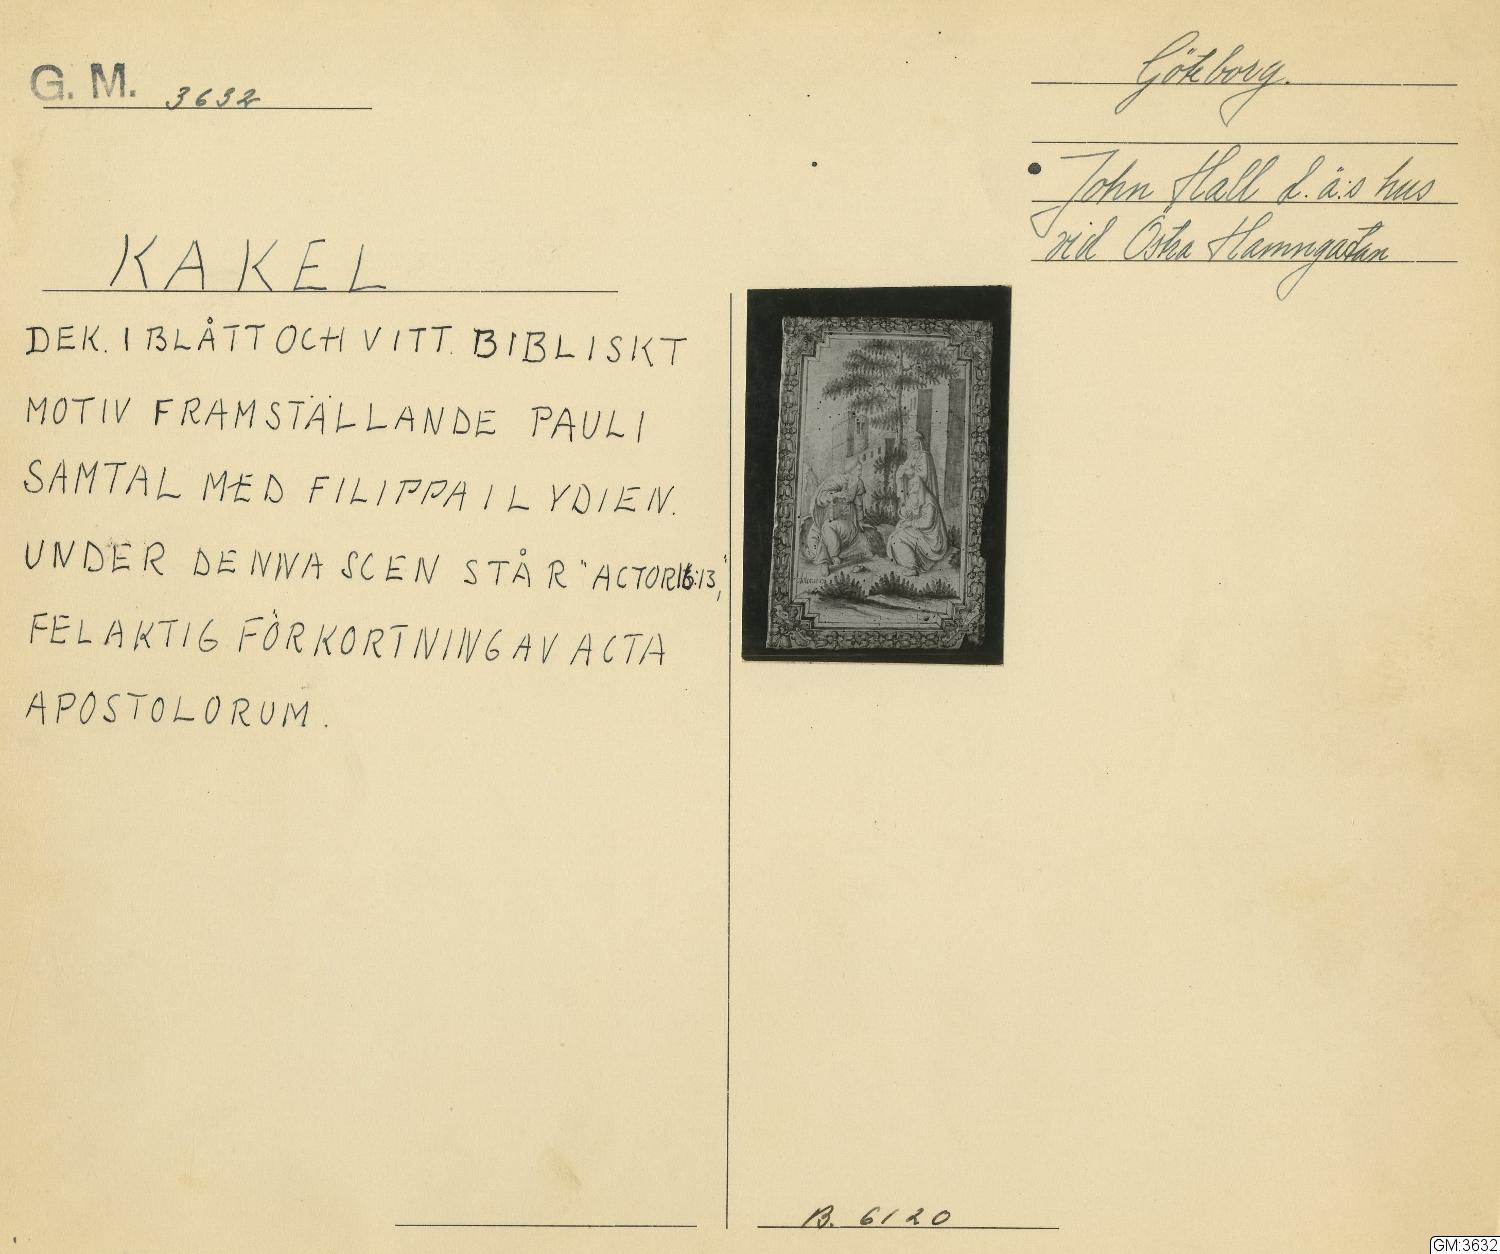 G. M. 3632
Göteborg.
John Hall d. ä:s hus
vid Östra Hamngatan
KAKEL
DEK. I BLÅTT OCH VITT. BIBLISKT
MOTIV FRAMSTÄLLANDE PAULI
SAMTAL MED FILIPPA I LYDIEN.
UNDER DENNA SCEN STÅR "ACTOR 16:13,"
FELAKTIG FÖRKORTNING AV ACTA
APOSTOLORUM.
B. 6120
GM:3632